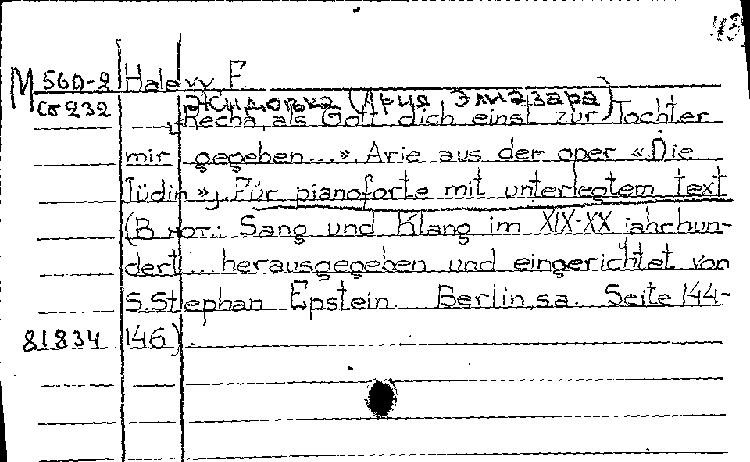 43
М 560-2 Halevy F.
Сб 232 Жидовка (Ария Элиазара)
"Recha, als Gott dich einst zur Tochter
mir gegeben...". Arie aus der oper «Die
Jüdin»; Für pianoforte mit unterlegtem text
(В нот.: Sang und Klang im XIX-XX jahrhun-
dert... herausgegeben und eingerichtet von
S. Stephan Epstein. Berlin, s.a. Seite 144-
81834 146)